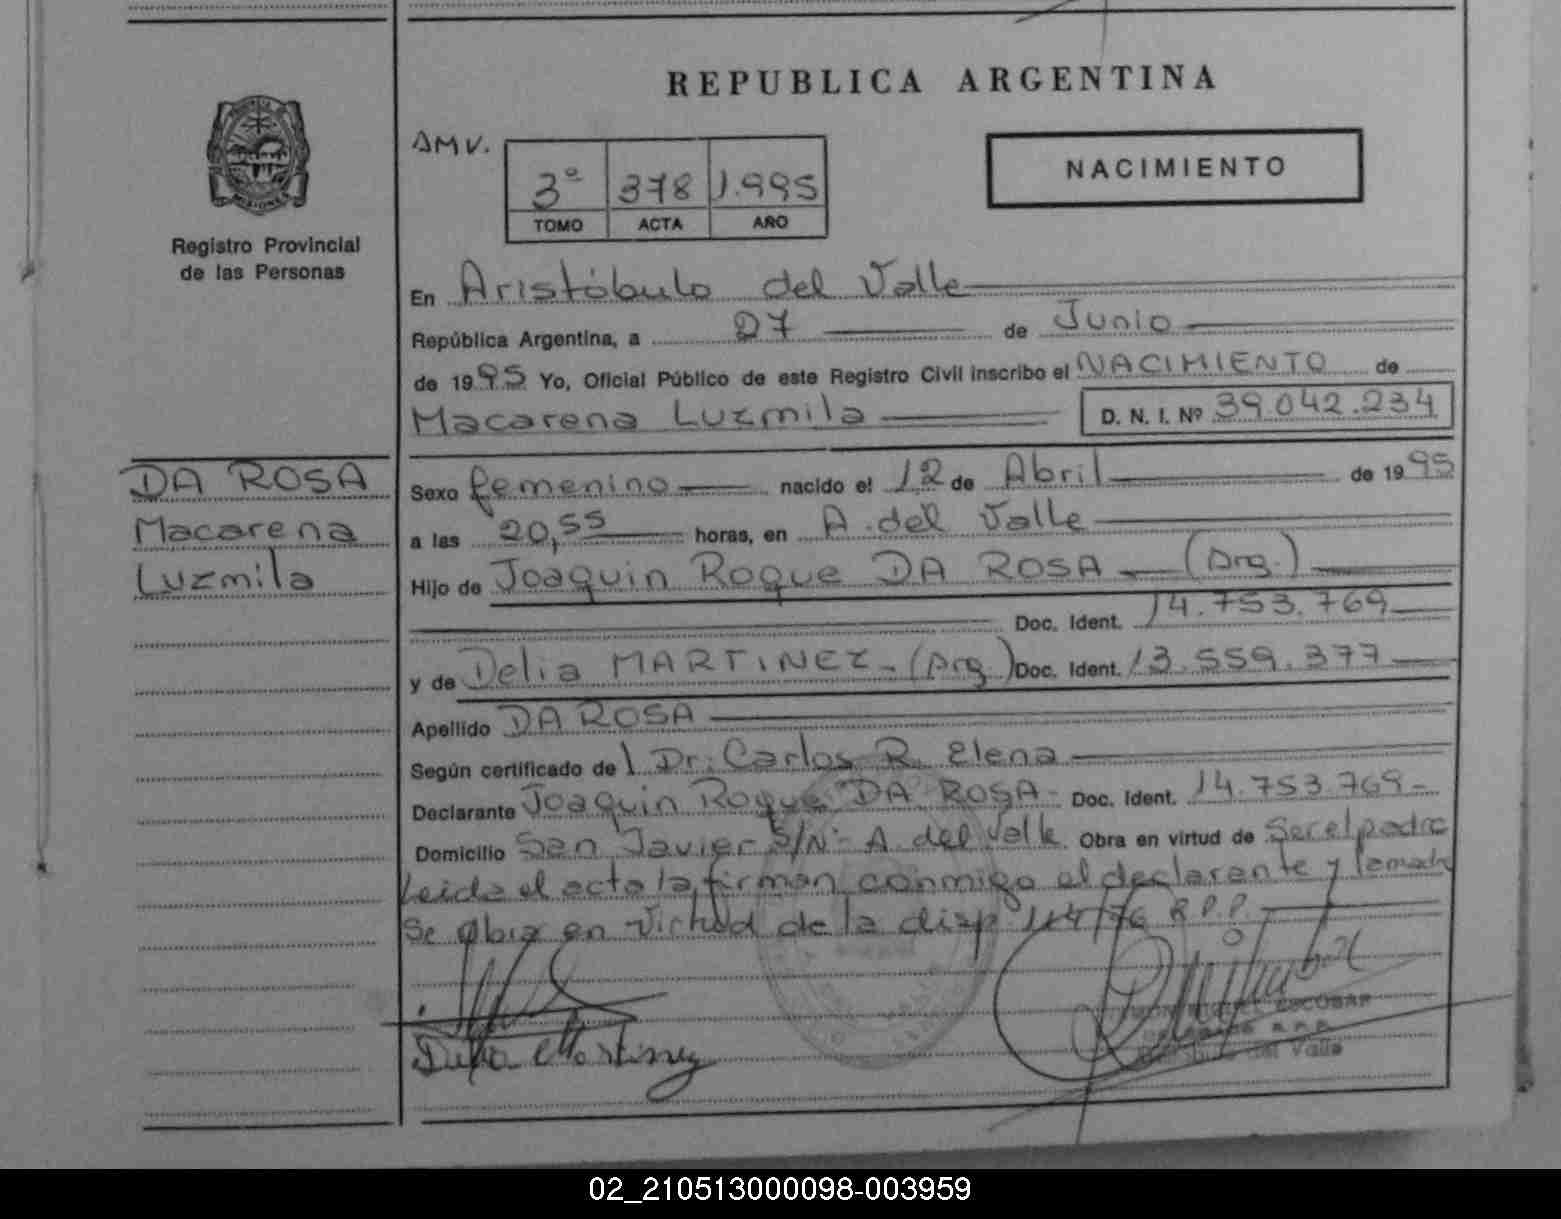 REPUBLICA ARGENTINA
AMV.
3º 378 1.995
TOMO ACTA AÑO
NACIMIENTO
MISIONES
Registro Provincial
de las Personas
En Aristóbulo del Valle
República Argentina, a 27 de Junio
de 1995 Yo, Oficial Público de este Registro Civil inscribo el NACIMIENTO de
Macarena Luzmila D. N. I. Nº 39.042.234
DA ROSA
Macarena
Luzmila
Sexo femenino nacido el 12 de Abril de 1995
a las 20,55 horas, en A. del Valle
Hijo de Joaquin Roque DA ROSA (Arg.)
Doc. Ident. 14.753.769
y de Delia MARTINEZ - (Arg.) Doc. Ident. 13.559.377
Apellido DA ROSA
Según certificado de l Dr. Carlos R. Elena
Declarante Joaquin Roque DA ROSA - Doc. Ident. 14.753.769 -
Domicilio San Javier S/Nº - A. del Valle Obra en virtud de Ser el padre
Leida el acta la firman conmigo el declarante y la madre
Se obra en virtud de la disp. 114/76 R.P.P.
Delia Martinez
MIGUEL ESCOBAR
del Valle
02_210513000098-003959